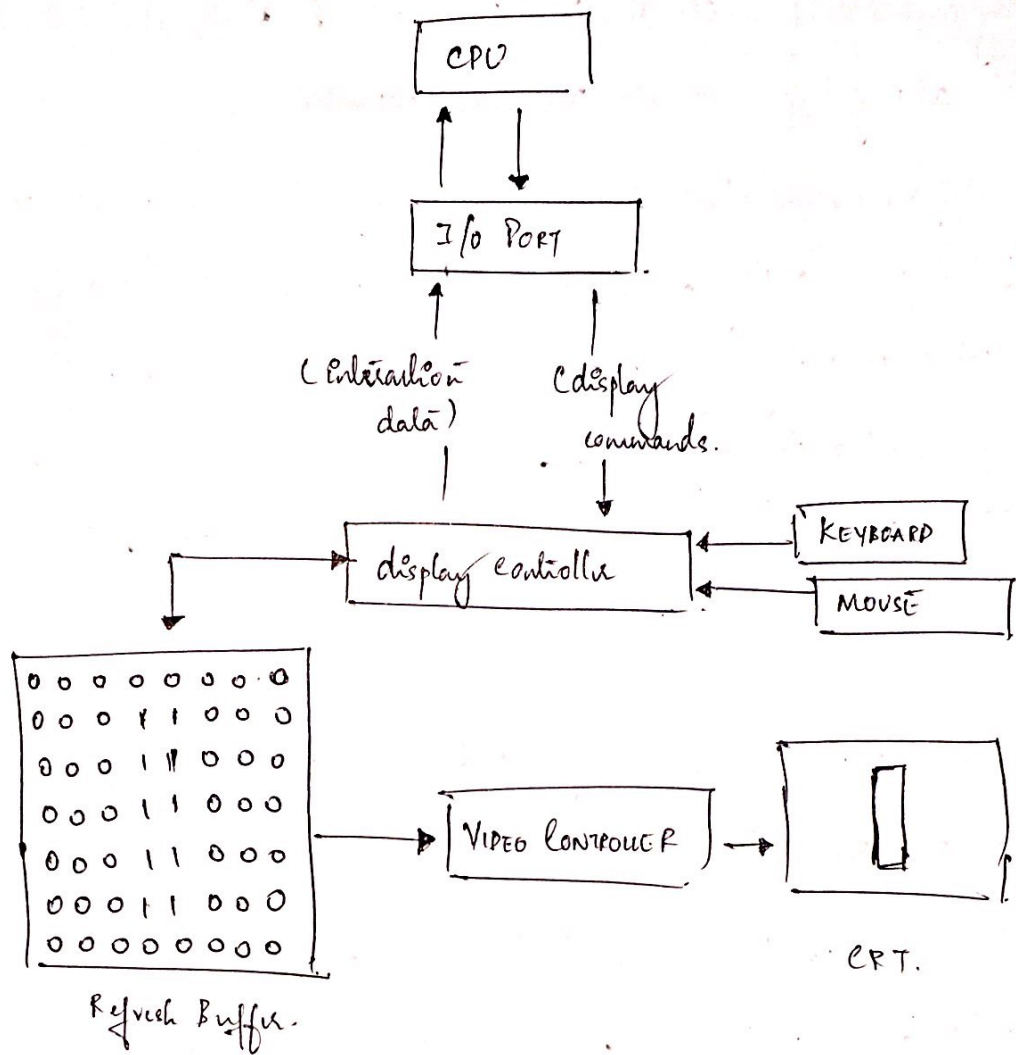 CPU
I/O PORT
(interaction
data)
(display
commands.
display controller
KEYBOARD
MOUSE
0 0 0 0 0 0 0 0
0 0 0 1 1 0 0 0
0 0 0 1 1 0 0 0
0 0 0 1 1 0 0 0
0 0 0 1 1 0 0 0
0 0 0 1 1 0 0 0
0 0 0 0 0 0 0 0
VIDEO CONTROLLER
CRT.
Refresh Buffer.